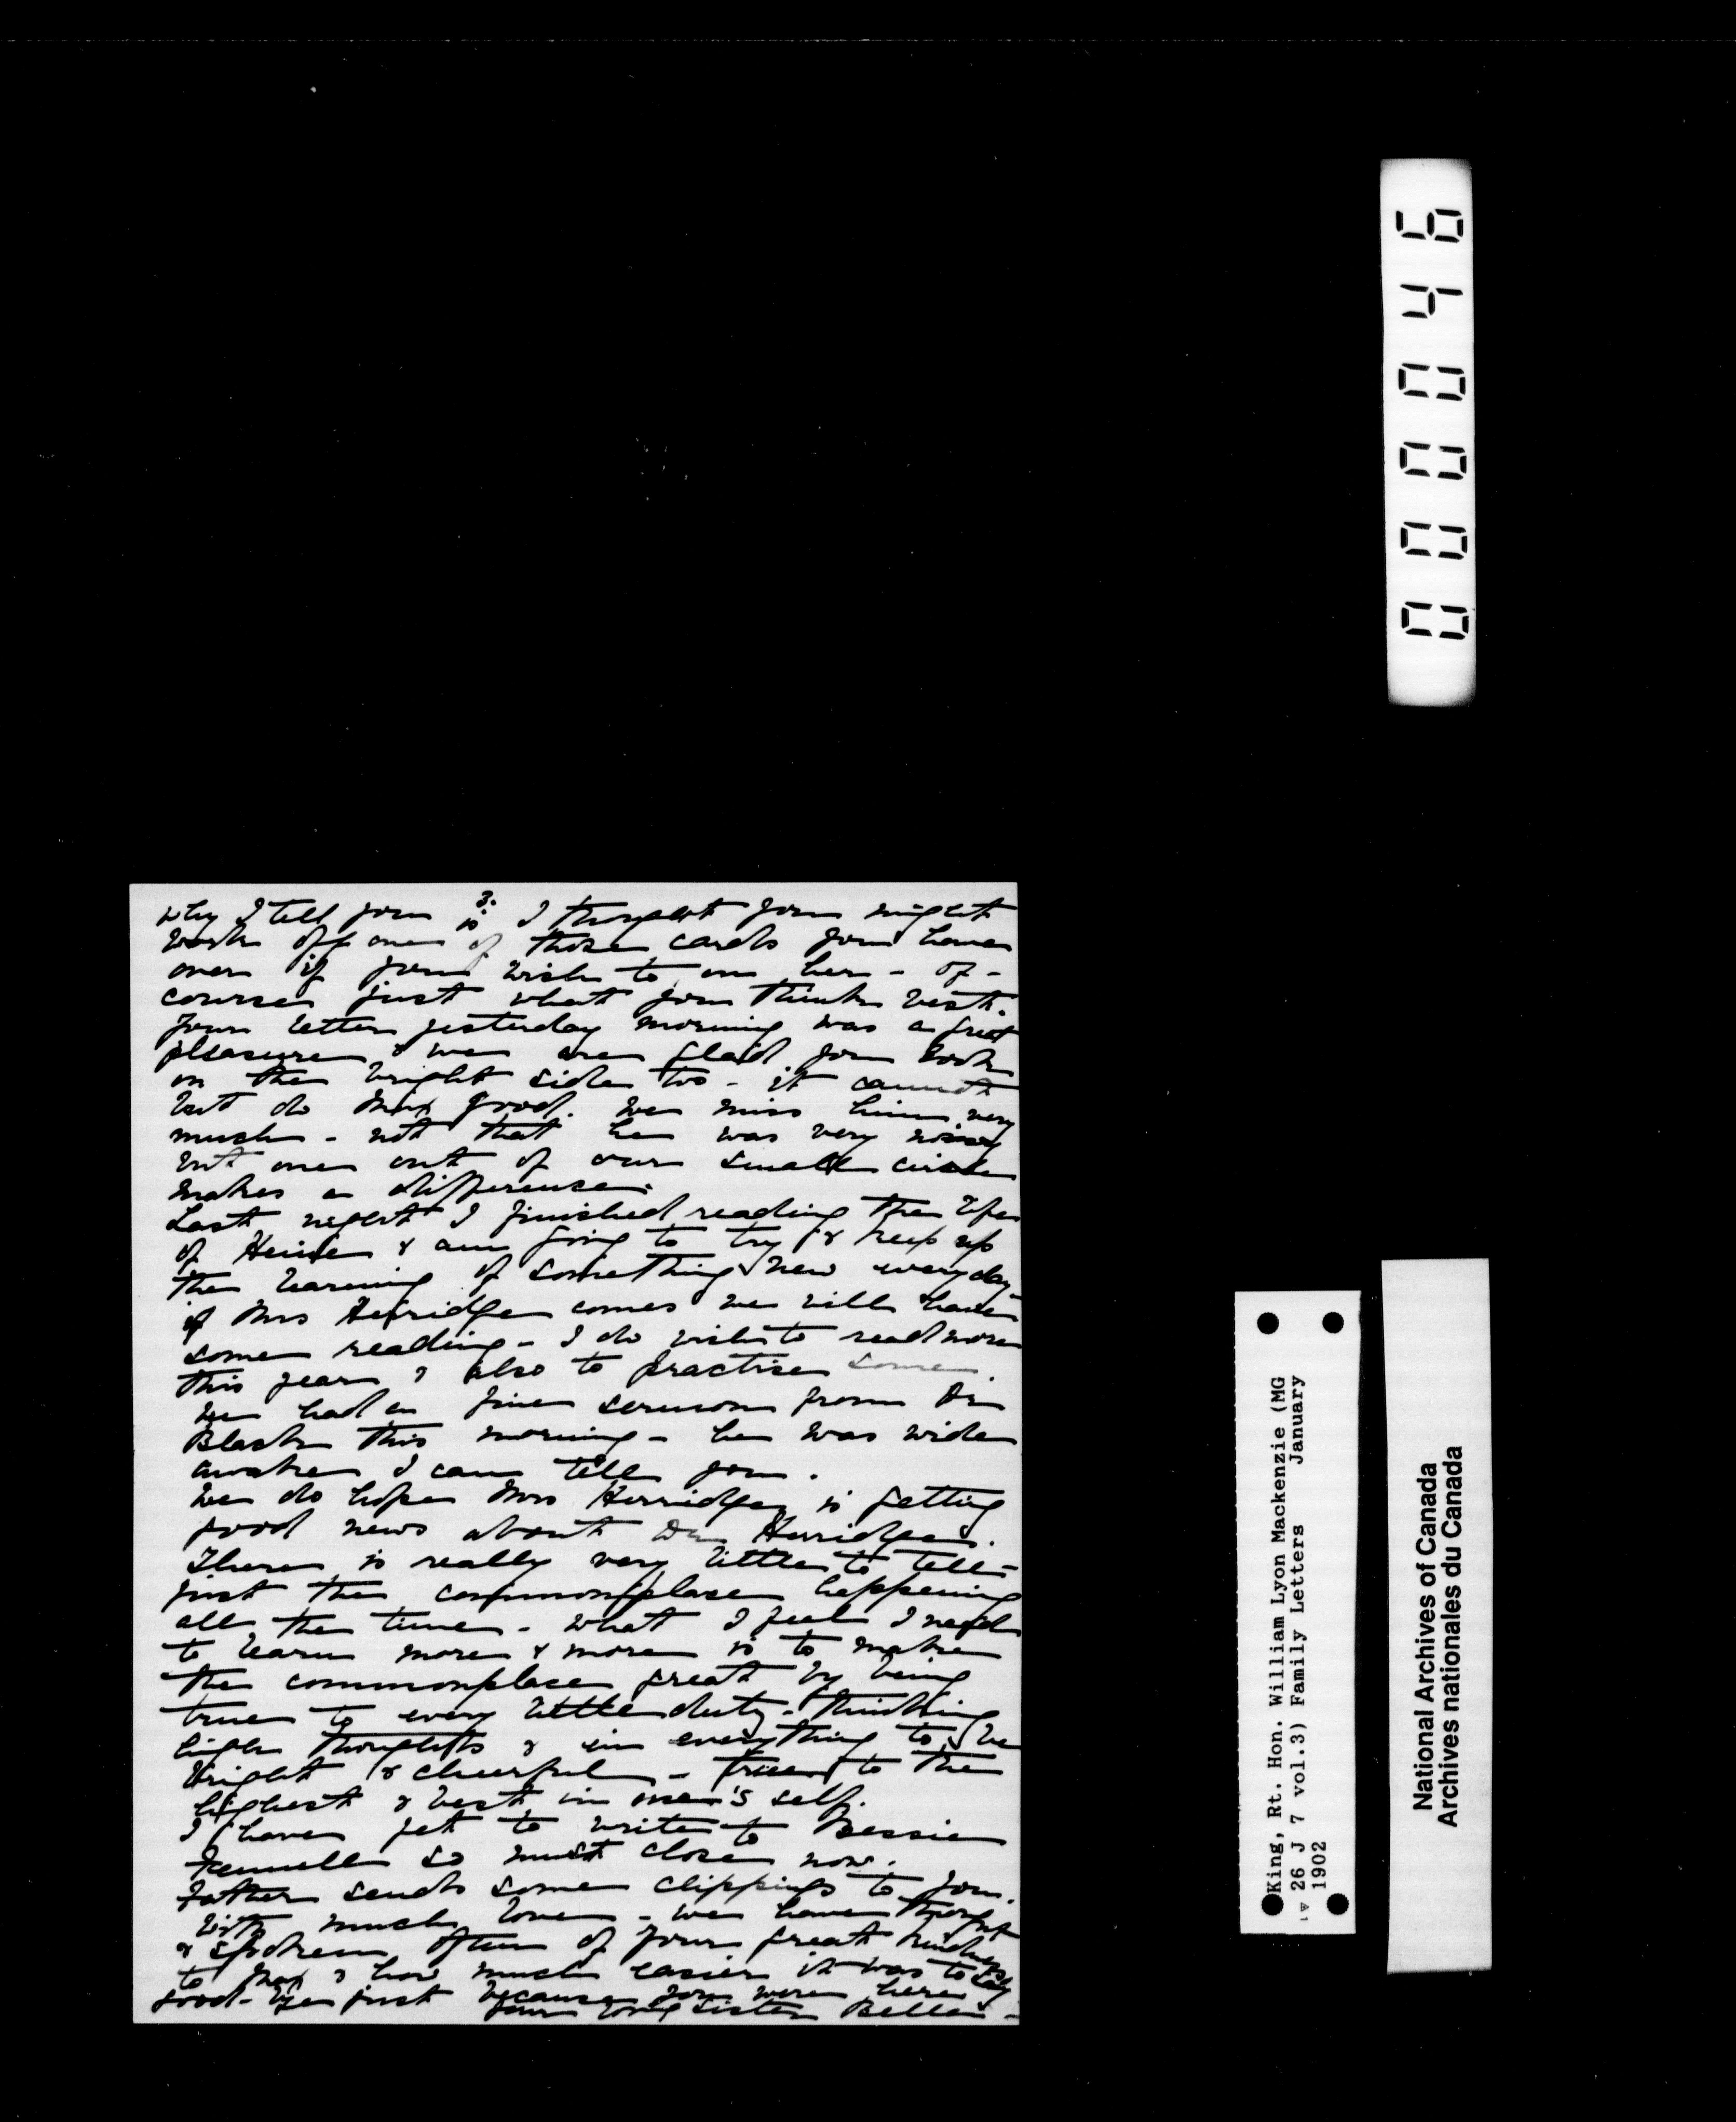 3.
why I tell you is I thought you might
work off one of those cards you have
over if you wish to on her - of -
course just what you think best.
Your letter yesterday morning was a great
pleasure & we are glad you look
on the bright side too - it cannot
but do Max good. We miss him very
much - not that he was very noisy
but one out of our small circle
makes a difference.
Last night I finished reading the life
of Heine & am going to try & keep up
the learning of something new every day -
if Mrs Herridge comes we will have
some reading - I do wish to read more
this year & also to practise some.
We had a fine sermon from Dr
Black this morning - he was wide
awake I can tell you.
We do hope Mrs Herridge is getting
good news about Dr Herridge.
There is really very little to tell -
just the commonplace happening
all the time - what I feel I need
to learn more & more is to make
the commonplace great by being
true to every little duty - thinking
high thoughts & in everything to be
bright & cheerful - true to the
highest & best in one's self.
I have yet to write to Bessie
so must close now.
Father sends some clippings to you.
With much love - we have thought
& spoken often of your great kindness
to Max & how much easier it was to say
good-bye just because you were here
Your loving sister Bella -
000046
King, Rt. Hon. William Lyon Mackenzie (MG
26 J 7 vol.3) Family Letters January
1902
National Archives of Canada
Archives nationales du Canada